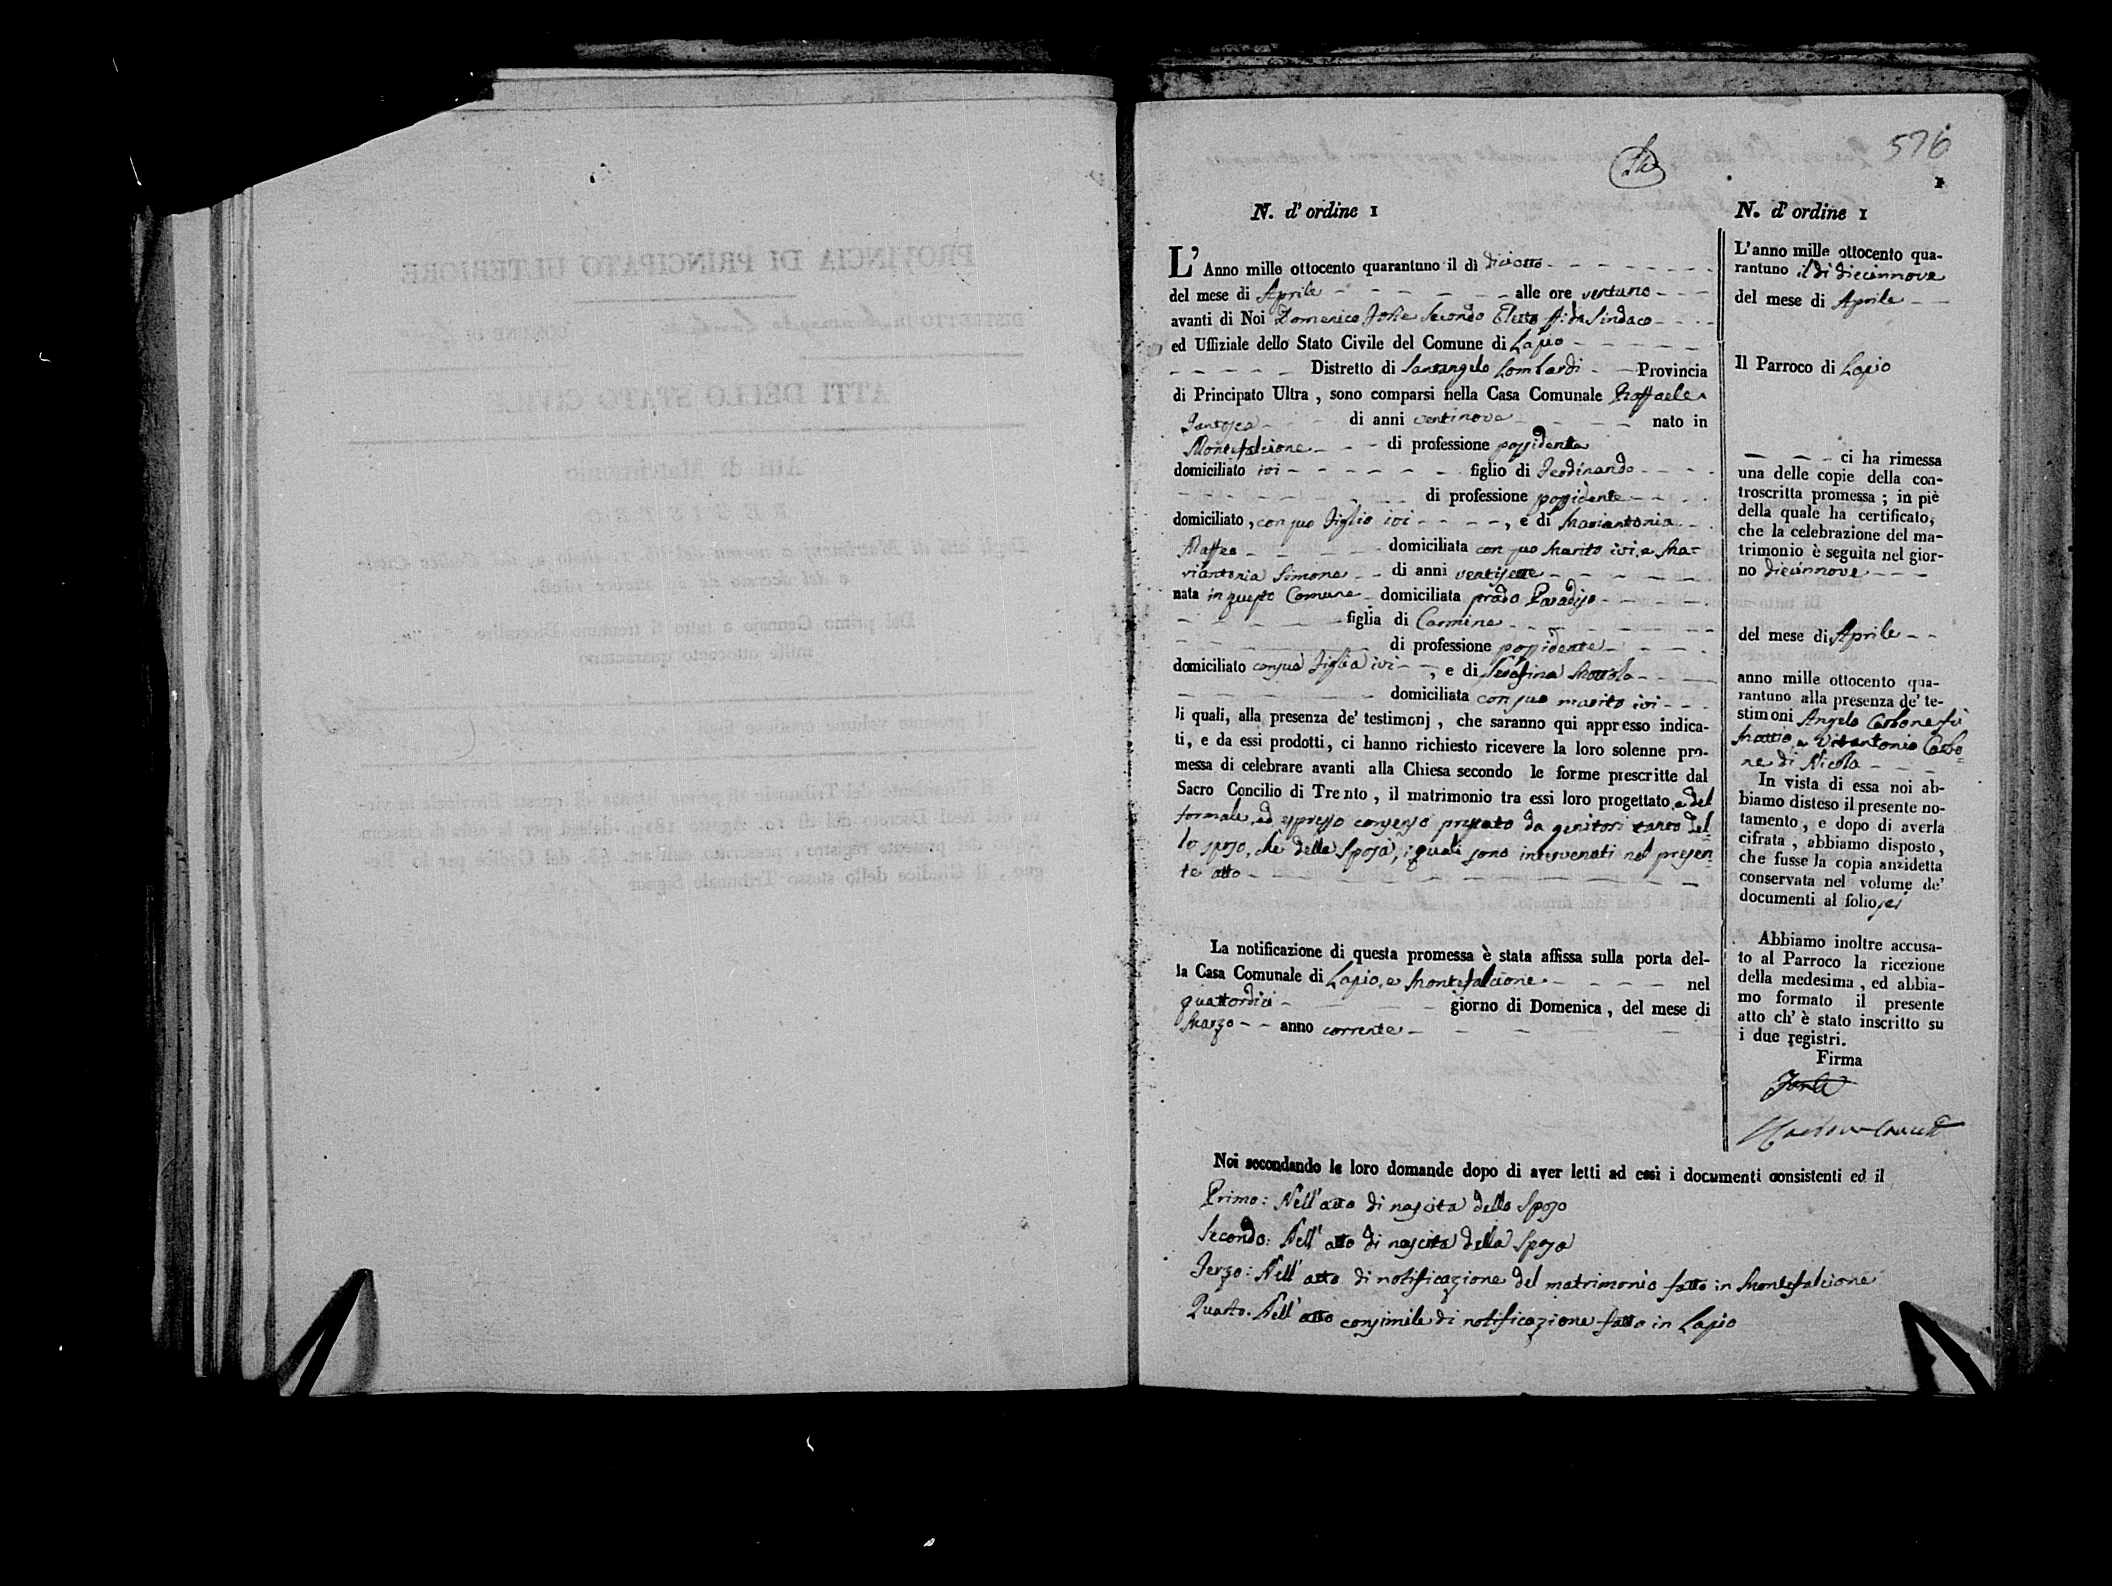 576
1
N. d' ordine 1
L' Anno mille ottocento quarantuno il dì diciotto
del mese di Aprile alle ore ventuno
avanti di Noi Domenico Secondo Eletto ff: da Sindaco
ed Uffiziale dello Stato Civile del Comune di Lapio
Distretto di Santangelo Lombardi Provincia
di Principato Ultra, sono comparsi nella Casa Comunale Raffaele
di anni ventinove nato in
Montefalcione di professione possidente
domiciliato ivi figlio di Ferdinando
di professione possidente
domiciliato, con suo figlio ivi, e di Mariantonia
Maffeo domiciliata con suo marito ivi, e Ma-
riantonia Simone di anni ventisette
nata in questo Comune domiciliata strada Paradiso
figlia di Carmine
di professione possidente
domiciliato con sua figlia ivi, e di Serafina
domiciliata con suo marito ivi
li quali, alla presenza de' testimonj, che saranno qui appresso indica-
ti, e da essi prodotti, ci hanno richiesto ricevere la loro solenne pro-
messa di celebrare avanti alla Chiesa secondo le forme prescritte dal
Sacro Concilio di Trento, il matrimonio tra essi loro progettato, e del
formale, ed espresso consenso prestato da genitori tanto del-
lo sposo, che della sposa, i quali sono intervenuti nel presen-
te atto
La notificazione di questa promessa è stata affissa sulla porta del-
la Casa Comunale di Lapio, e Montefalcione nel
quattordici giorno di Domenica, del mese di
Marzo anno corrente
N. d' ordine 1
L'anno mille ottocento qua-
rantuno il dì diecinnove
del mese di Aprile
Il Parroco di Lapio
ci ha rimessa
una delle copie della con-
troscritta promessa; in piè
della quale ha certificato,
che la celebrazione del ma-
trimonio è seguita nel gior-
no diecinnove
del mese di Aprile
anno mille ottocento qua-
rantuno alla presenza de' te-
stimoni Angelo Carbone fù
Mattia, e Vitantonio Carbo-
ne di Nicola
In vista di essa noi ab-
biamo disteso il presente no-
tamento, e dopo di averla
cifrata, abbiamo disposto,
che fusse la copia anzidetta
conservata nel volume de'
documenti al folio sei
Abbiamo inoltre accusa-
to al Parroco la ricezione
della medesima, ed abbia-
mo formato il presente
atto ch' è stato inscritto su
i due registri.
Firma
Noi secondando le loro domande dopo di aver letti ad essi i documenti consistenti ed il
Primo: Nell' atto di nascita dello Sposo
Secondo: Nell' atto di nascita della Sposa
Terzo: Nell' atto di notificazione del matrimonio fatto in Montefalcione
Quarto: Nell' atto consimile di notificazione fatto in Lapio